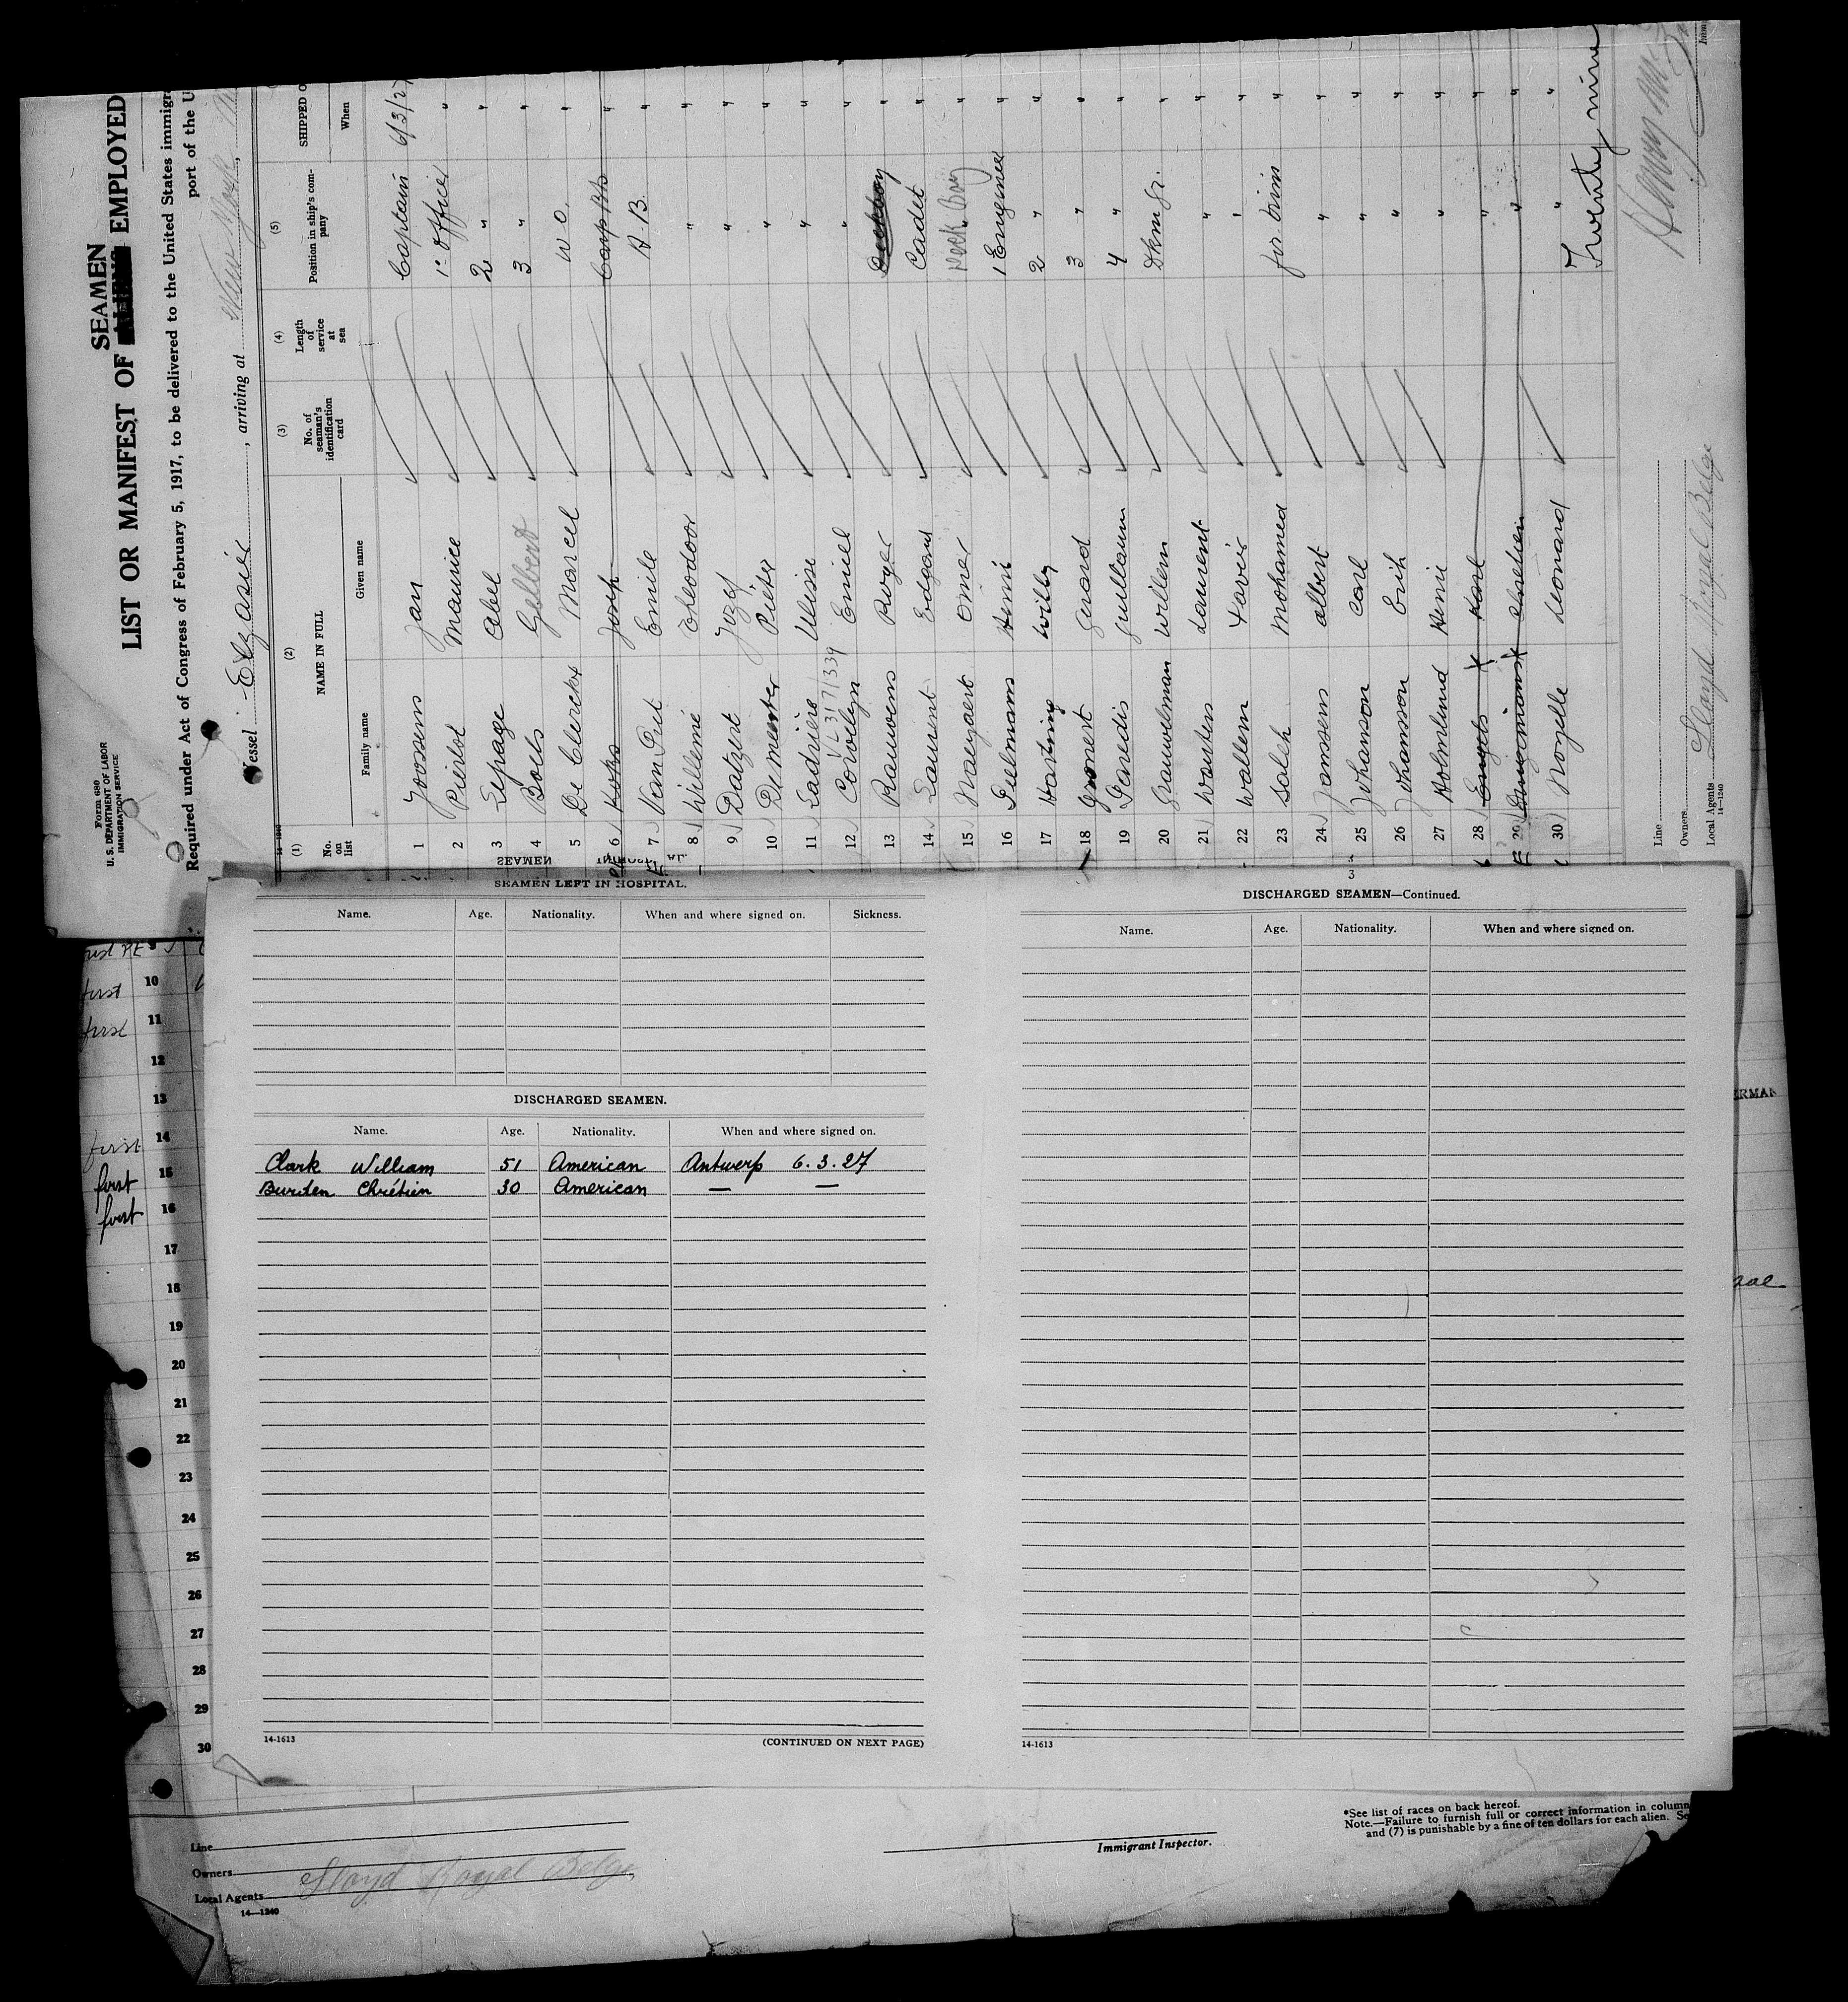 Form 680
U. S. DEPARTMENT OF LABOR
IMMIGRATION SERVICE
SEAMEN
LIST OR MANIFEST OF EMPLOYED
Required under Act of Congress of February 5, 1917, to be delivered to the United States immigra
port of the U
Vessel Elzasier, arriving at New York,
(1) (2) (3) (4) (5)
No. on list NAME IN FULL No. of seaman's identification card Length of service at sea Position in ship's company SHIPPED O
Family name Given name When
1 Joossens Jan Captain 6/3/27
2 Pierlot Maurice 1e Officer "
3 Lepage Abel 2 " "
4 Bolls Gilbert 3 " "
5 De Clerckx Marcel W O. "
6 Joseph "
7 Van Put Emile A. B. "
8 Willemé Theodoor " "
9 Datzert Jozef " "
10 De Meester Pieter " "
11 Ladrière Ulisse " "
VL 3171339
12 Corveleyn Emiel " "
13 Rauwens Roger "
14 Laurent Edgard Cadet "
15 Walgaert Omer Deck Boy "
16 Pielmans Henri 1 Engineer "
17 Hartning Willy 2 " "
18 Gerard 3 " "
19 Paredis Guillaum 4 " "
20 Grauwelman Willem Dkm Gr. "
21 Wouters Laurent " "
22 Wallem Xavier " "
23 Saleh Mohamed "
24 Janssens Albert " "
25 Johansson Carl " "
26 Johansson Erik " "
27 Holmlund Henri " "
28 Engels Karl " "
29 Chretien " "
30 Nozelle Leonard " "
Twenty nine
Line
Owners
Local Agents Lloyd Royal Belge
14-1240
SEAMEN
SEAMEN LEFT IN HOSPITAL.
Name. Age. Nationality. When and where signed on. Sickness.
DISCHARGED SEAMEN.
Name. Age. Nationality. When and where signed on.
Clark William 51 American Antwerp 6.3.27
Burden Chrétien 30 American — —
14-1613 (CONTINUED ON NEXT PAGE)
3
DISCHARGED SEAMEN—Continued.
Name. Age. Nationality. When and where signed on.
14-1613
9
first 10
first 11
12
13
first 14
first 15
first 16
17
18
19
20
21
22
23
24
25
26
27
28
29
30
ERMAN
Line
Owners
Local Agents Lloyd Royal Belge
14—1240
Immigrant Inspector.
*See list of races on back hereof.
Note.—Failure to furnish full or correct information in column
and (7) is punishable by a fine of ten dollars for each alien. Se